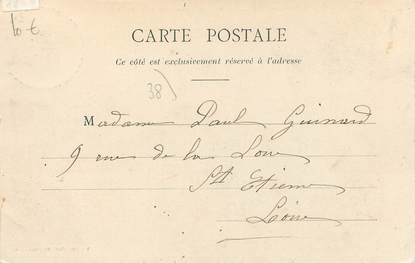 10 €
CARTE POSTALE
Ce côté est exclusivement réservé à l'adresse
38)
Madame Paul Guinard
9 rue de la Loire
St Etienne
Loire